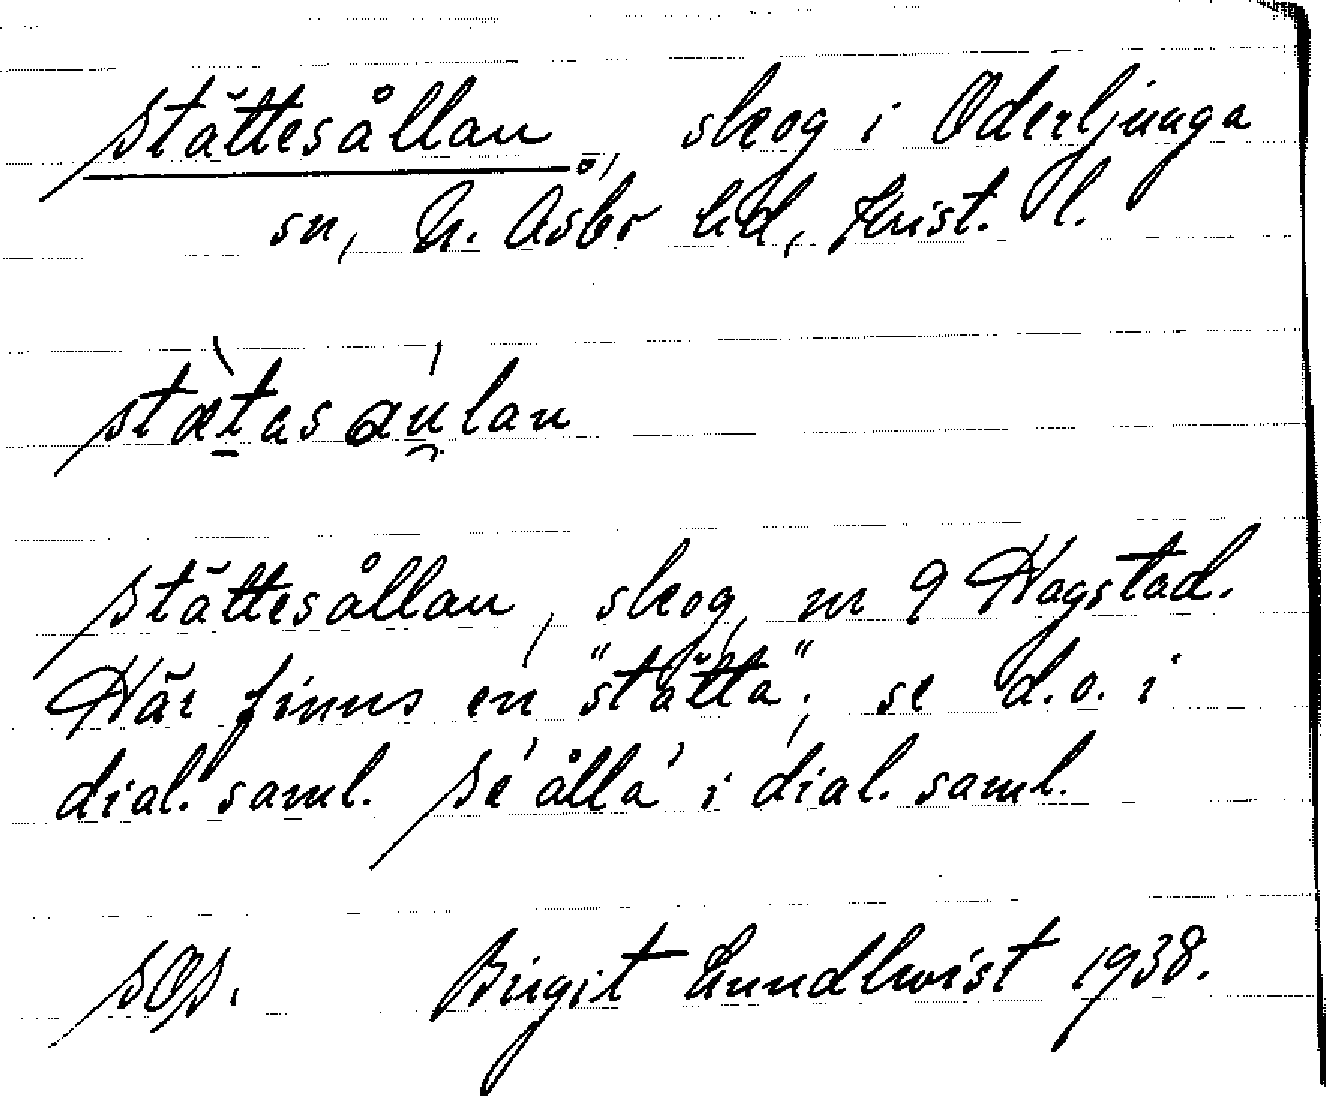 Stättesållan, skog i Oderljunga
sn, N. Åsbo hd, Krist. l.
stætasaulan
Stättesållan, skog, nr 9 Hagstad.
Här finns en "stätta"; se d.o. i
dial. saml. Se 'ålla' i dial. saml.
SOS. Birgit Lundkvist 1938.